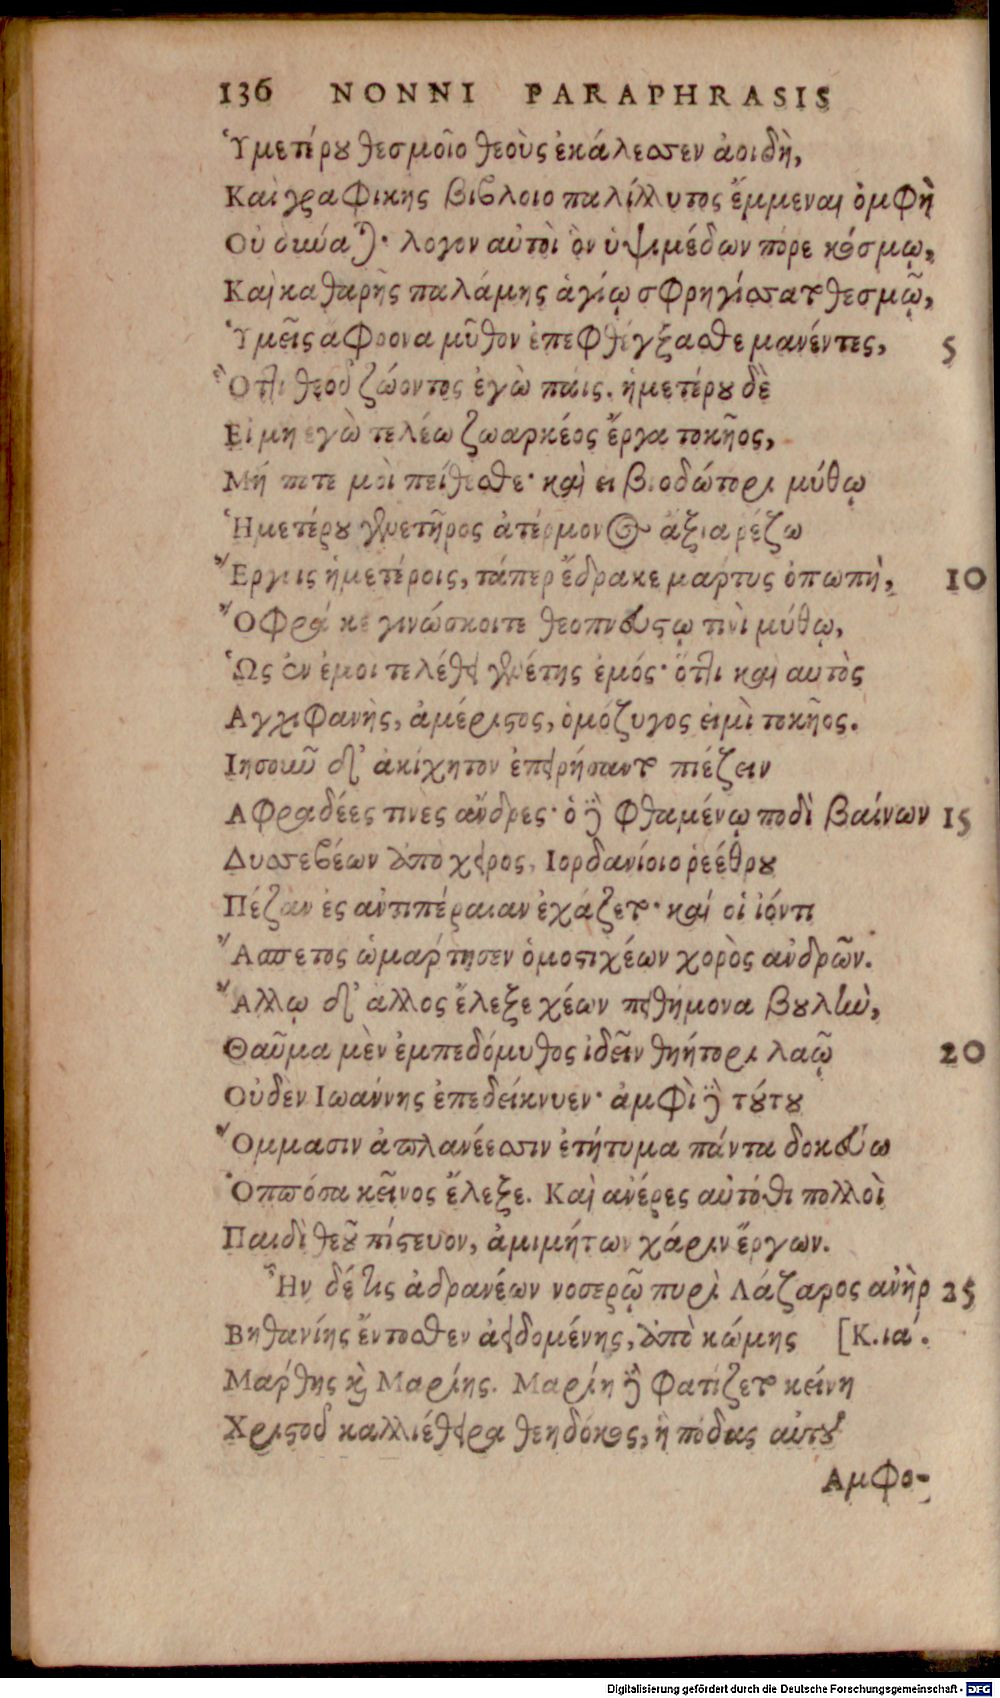 136 NONNI PARAPHRASIS
Ὑμετέρου θεσμοῖο θεοὺς ἐκάλεσσεν ἀοιδὴ,
Καὶ γραφικῆς βίβλοιο παλίλλυτος ἔμμεναι ὀμφὴ
Οὐ δύναται· λόγον αὐτοὶ ὃν ὑψιμέδων πόρε κόσμῳ,
Καὶ καθαρῆς παλάμης ἁγίῳ σφρηγίσσατο θεσμῷ,
Ὑμεῖς ἄφρονα μῦθον ἐπεφθέγξασθε μανέντες, 5
Ὅττι θεοῦ ζώοντος ἐγὼ πάις. ἡμετέρου δὲ
Εἰ μὴ ἐγὼ τελέω ζωαρκέος ἔργα τοκῆος,
Μή ποτε μοὶ πείθεσθε· καὶ εἰ βιοδώτορι μύθῳ
Ἡμετέρου γενετῆρος ἀτέρμονος ἄξια ῥέζω
Ἔργοις ἡμετέροις, τάπερ ἔδρακε μάρτυς ὀπωπὴ, 10
Ὄφρά κε γινώσκοιτε θεοπνεύστῳ τινὶ μύθῳ,
Ὡς ἐν ἐμοι τελέθει γενέτης ἐμός· ὅττι καὶ αὐτὸς
Αγχιφανὴς, ἀμέριστος, ὁμόζυγος εἰμὶ τοκῆος.
Ιησοῦν δ' ἀκίχητον ἐπειρήσαντο πιέζειν
Αφραδέες τινὲς ἄνδρες· ὁ δὲ φθαμένῳ ποδὶ βαίνων 15
Δυσσεβέων ἀπὸ χειρὸς, Ιορδανίοιο ῥεέθρου
Πέζαν ἐς ἀντιπέραιαν ἐχάζετο· καί οἱ ἰόντι
Ἄσπετος ὡμάρτησεν ὁμοστιχέων χορὸς ἀνδρῶν.
Ἄλλῳ δ' ἄλλος ἔλεξε χέων πειθήμονα βουλὴν,
Θαῦμα μὲν ἐμπεδόμυθος ἰδεῖν θηήτορι λαῷ 20
Οὐδὲν Ιωάννης ἐπεδείκνυεν· ἀμφὶ δὲ τούτου
Ὄμμασιν ἀπλανέεσσιν ἐτήτυμα πάντα δοκεύω
Ὁππόσα κεῖνος ἔλεξε. Καὶ ἀνέρες αὐτόθι πολλοὶ
Παιδὶ θεοῦ πίστευον, ἀμιμήτων χάριν ἔργων.
Ἦν δέ τις ἀδρανέων νοσερῷ πυρὶ Λάζαρος ἀνὴρ 25
Βηθανίης ἔντοσθεν ἀειδομένης, ἀπὸ κώμης [Κ.ια'.
Μάρθης καὶ Μαρίης. Μαρίη δὲ φατίζετο κείνη
Χριστοῦ καλλιέθειρα θεηδόκος, ἣ πόδας αὐτοῦ
Αμφο-
Digitalisierung gefördert durch die Deutsche Forschungsgemeinschaft - DFG